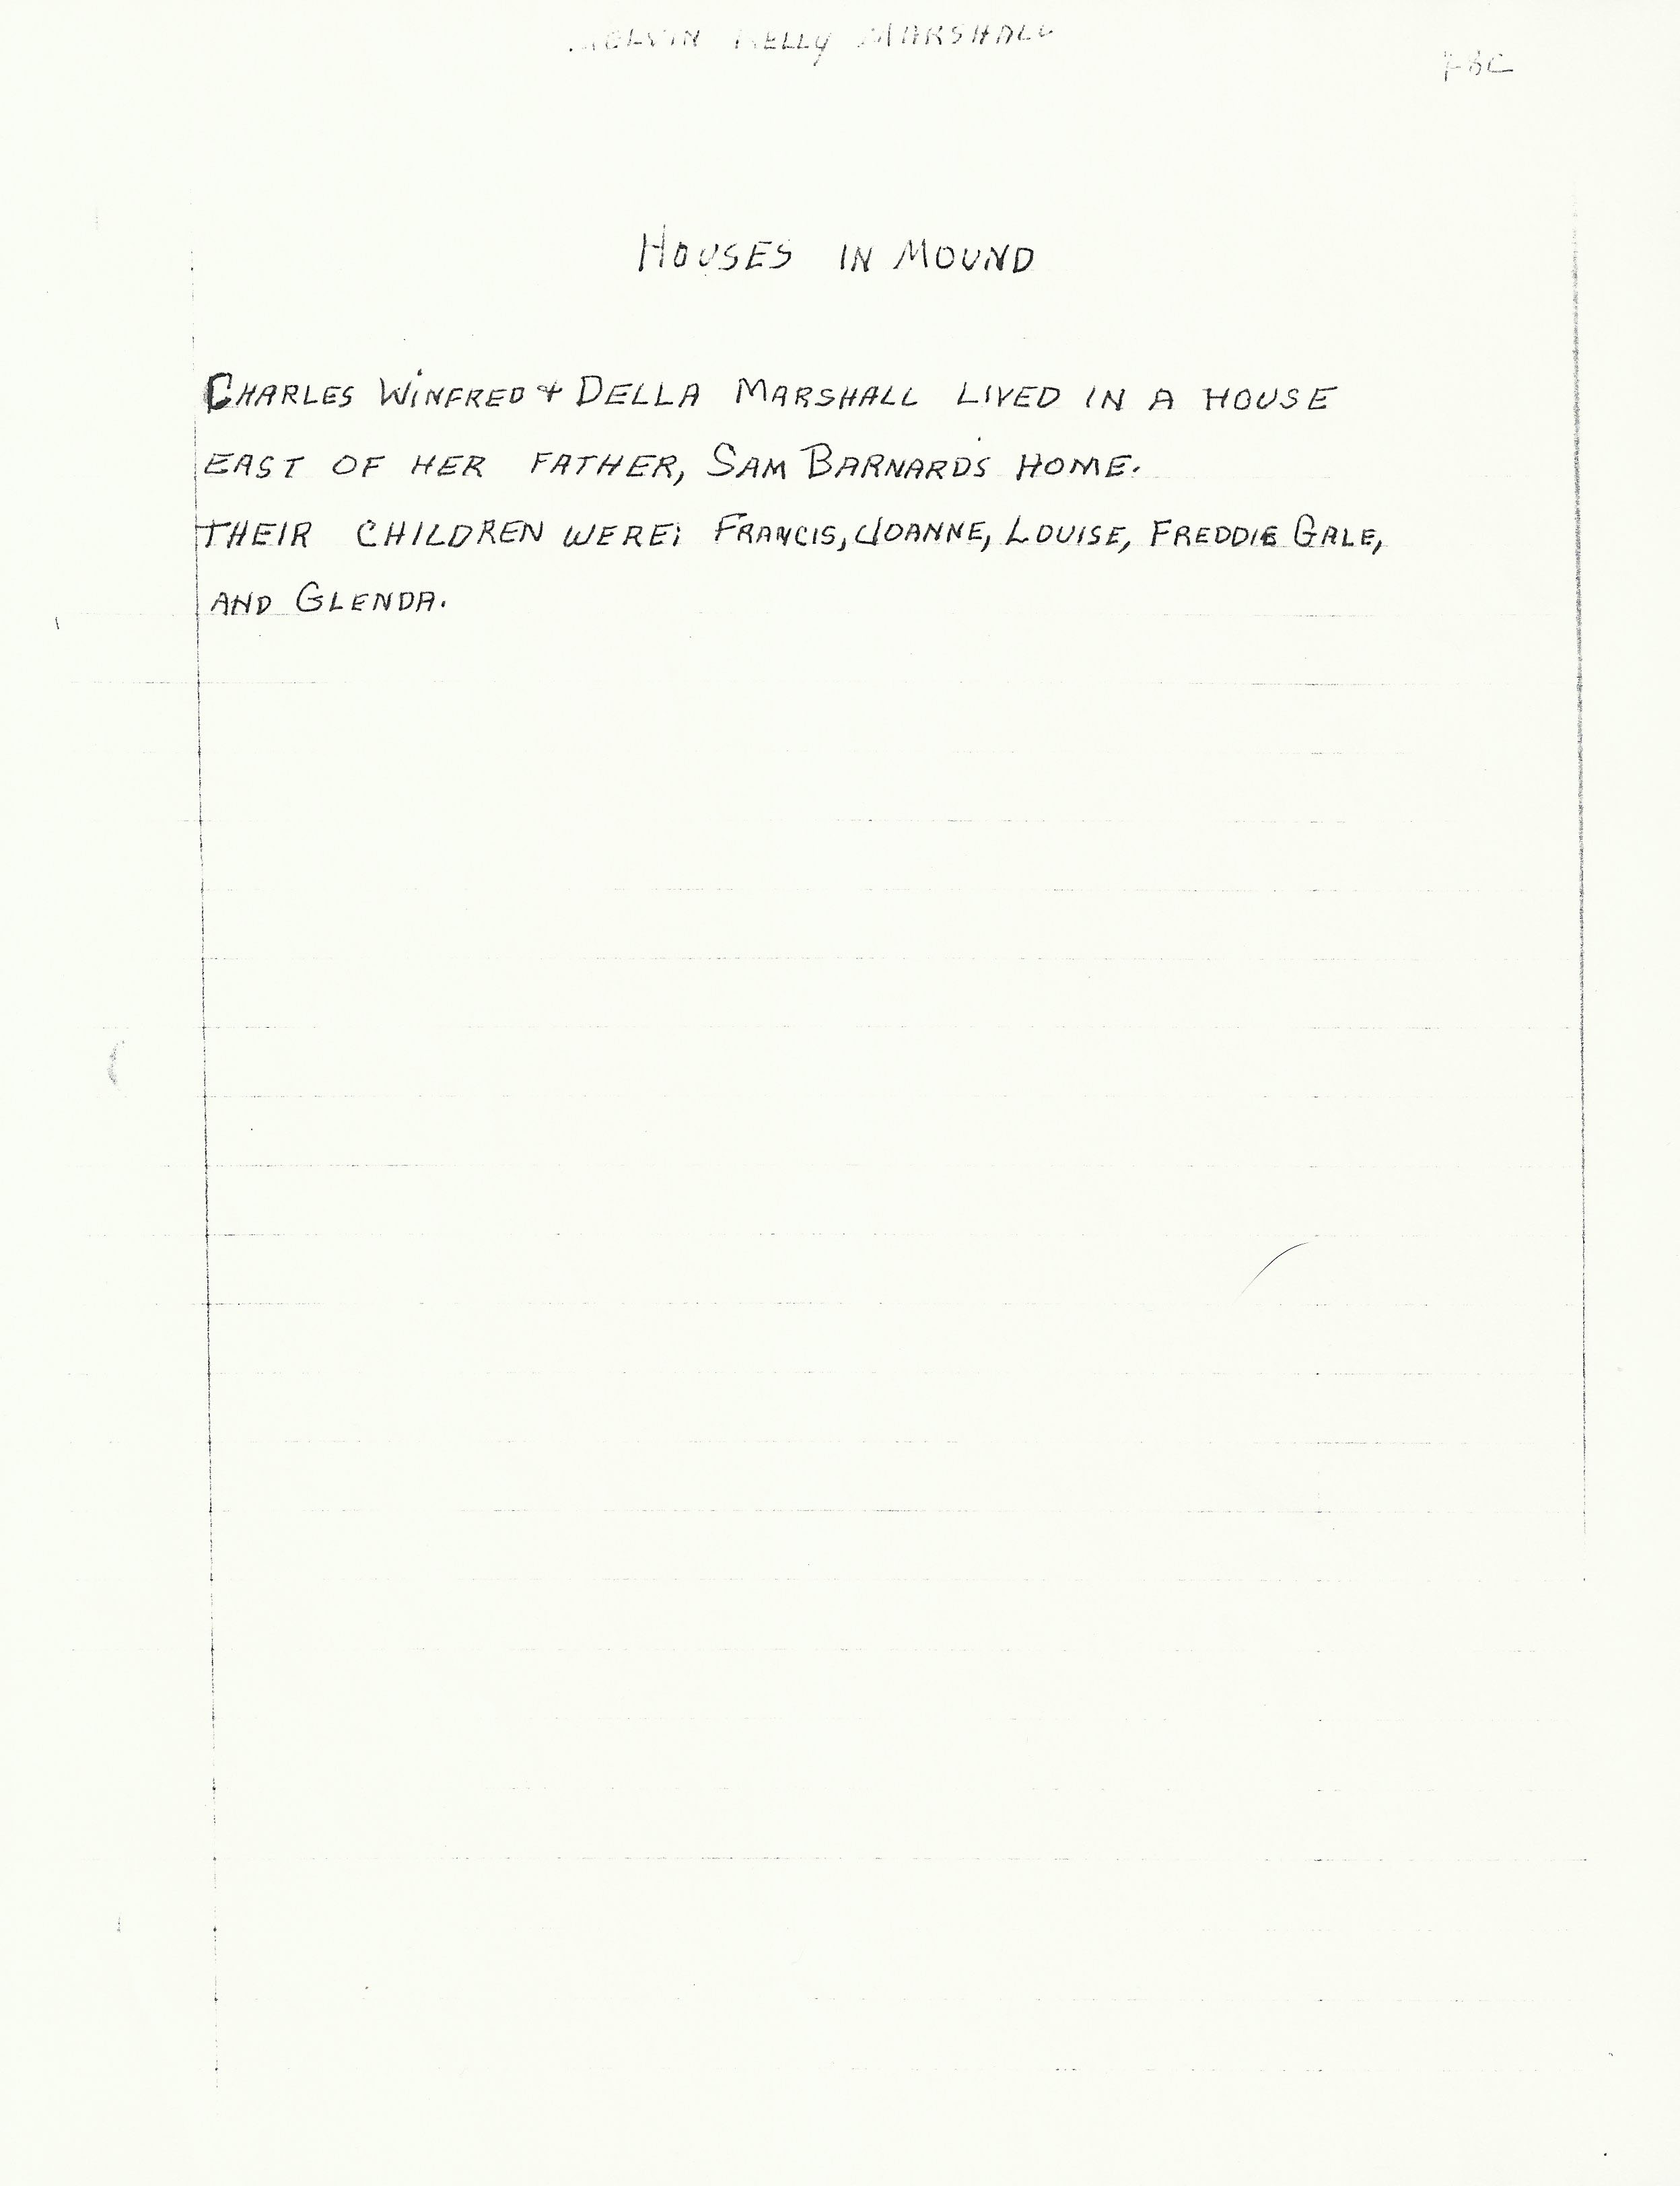 MELVIN KELLY MARSHALL
HOUSES IN MOUND
CHARLES WINFRED & DELLA MARSHALL LIVED IN A HOUSE
EAST OF HER FATHER, SAM BARNARDS HOME.
THEIR CHILDREN WERE: FRANCIS, JOANNE, LOUISE, FREDDIE GALE,
AND GLENDA.